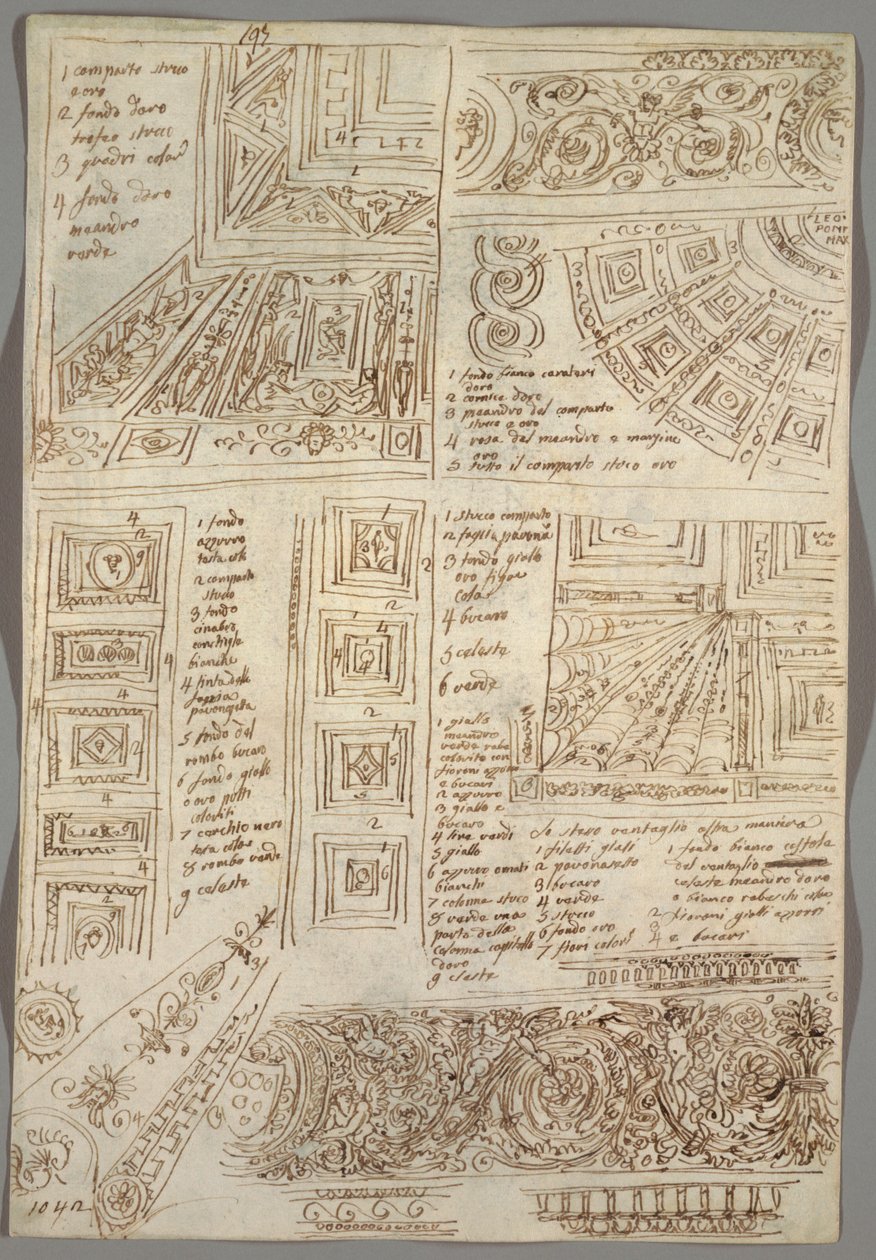 193
1 comparto stuco
e oro
2 fondo doro
trofeo stuco
3 quadri color
4 fondo doro
meandro
verde
LEO·
PONT
MAX
1 fondo bianco carateri
doro
2 cornice doro
3 meandro del comparto
stuco e oro
4 rosa del meandro e margine
oro
5 tutto il comparto stuco oro
1 fondo
azzurro
testa
2 comparto
stuco
3 fondo
cinabro
conchiglie
bianche
4 tinta
pavongetta
5 fondo del
rombo bucaro
6 fondo giallo
ovo putti
coloriti
7 cerchio nero
8 rombo verde
9 celeste
1 stuco comparto
2 fascia
3 fondo giallo
ovo
4 bucaro
5 celeste
6 verde
1 giallo
meandro
verde
colorito con
fioroni
e bucari
2 azzurro
3 giallo e
bucaro
4 tire verdi
5 giallo
6 azzurro ornati
bianchi
7 colonna stuco
8 verde una
parte della
colonna capitello
doro
9 celeste
Lo steso ventaglio altra maniera
1 filetti
2 pavonazetto
3 bucaro
4 verde
5 stuco
6 fondo oro
7 fiori color
1 fondo bianco costole
del ventaglio
celeste meandro doro
e bianco rabeschi
2 fioroni gialli azzurri
3
4 e bucari
1042